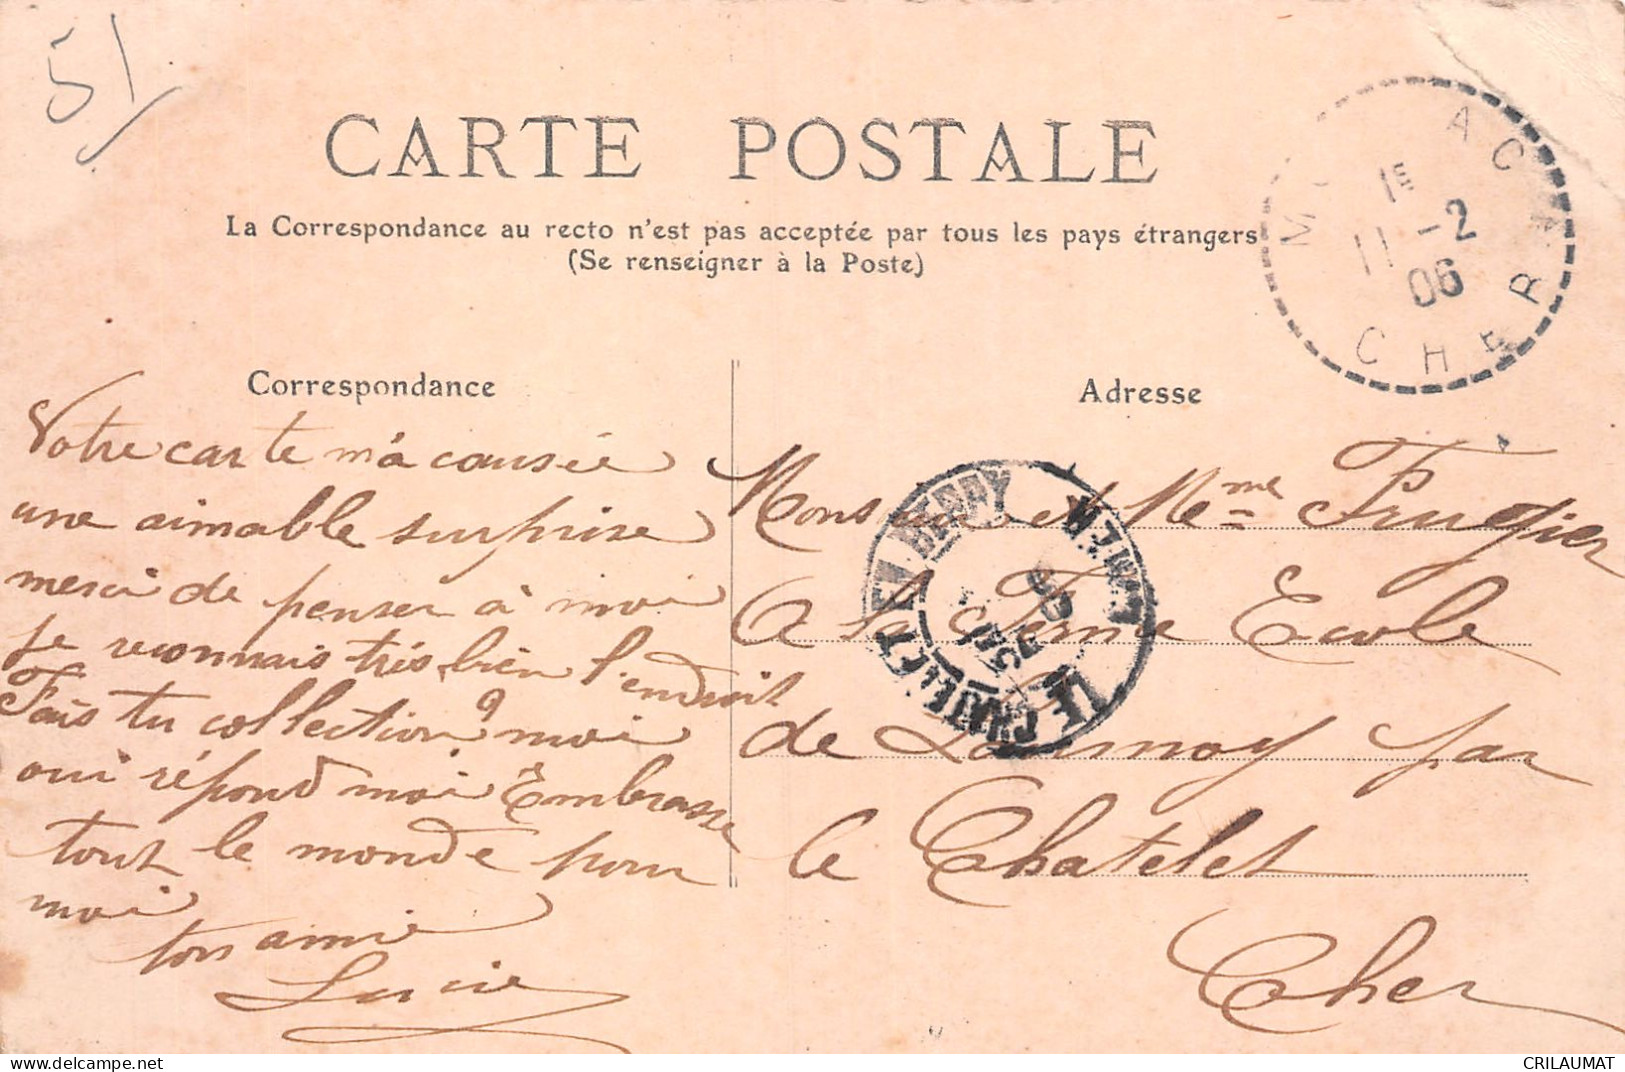 51
CARTE POSTALE
La Correspondance au recto n'est pas acceptée par tous les pays étrangers
(Se renseigner à la Poste)
M AC
1E
11 -2
06
CHER
Correspondance
Votre carte m'a causée
une aimable surprise
merci de penser à moi
je reconnais très bien l'endroit
Fais tu collection? moi
oui répond moi Embrasse
tout le monde pour
moi
ton amie
Lucie
Adresse
Monsieur et Mme Frugier
A la Ferme Ecole
de Launoy par
le Chatelet
Cher
LE CHATELET EN BERRY
06
CRILAUMAT